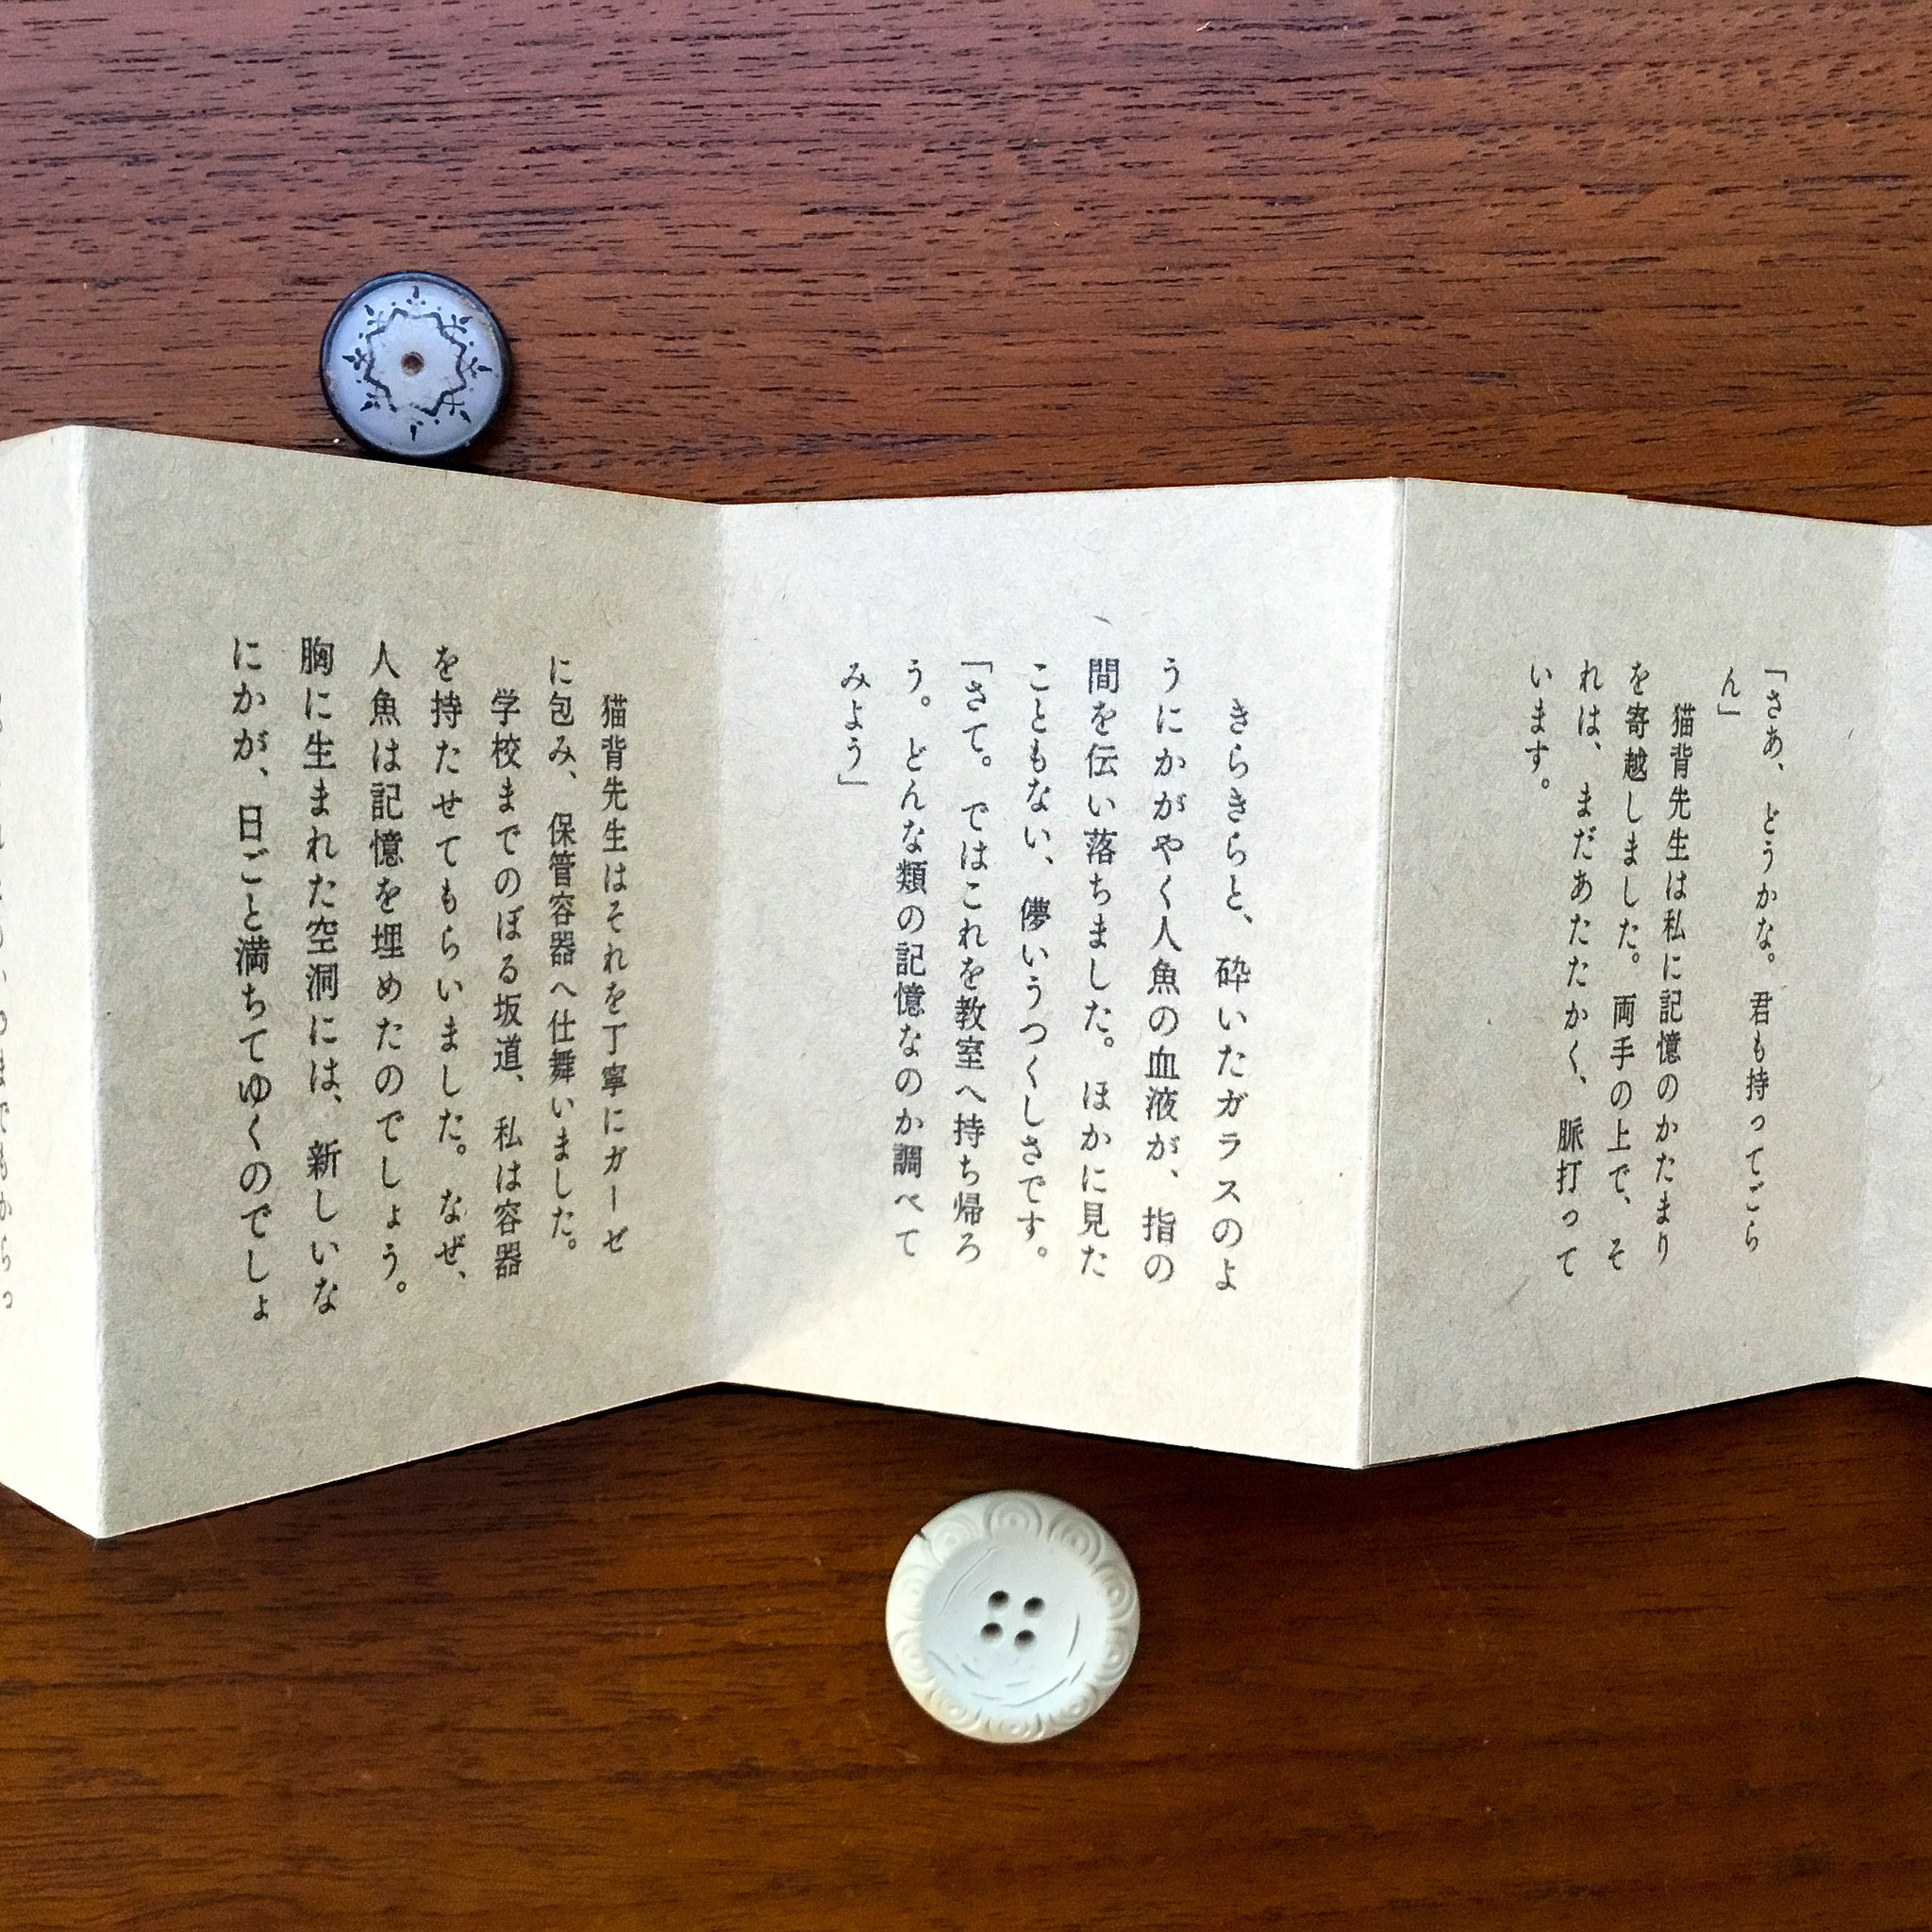 「さあ、どうかな。君も持ってごら
ん」
猫背先生は私に記憶のかたまり
を寄越しました。両手の上で、そ
れは、まだあたたかく、脈打って
います。
きらきらと、砕いたガラスのよ
うにかがやく人魚の血液が、指の
間を伝い落ちました。ほかに見た
こともない、儚いうつくしさです。
「さて。ではこれを教室へ持ち帰ろ
う。どんな類の記憶なのか調べて
みよう」
猫背先生はそれを丁寧にガーゼ
に包み、保管容器へ仕舞いました。
学校までのぼる坂道、私は容器
を持たせてもらいました。なぜ、
人魚は記憶を埋めたのでしょう。
胸に生まれた空洞には、新しいな
にかが、日ごと満ちてゆくのでしょ